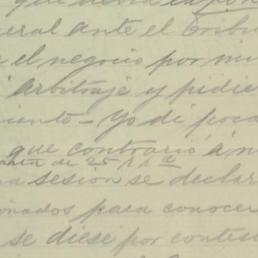 que debia expon
eral ante el Tribu
a el negocio por mi
i arbitraje y pidie
iento - Yo di poca
que contrario á n
de 25
a sesion se declar
onados para conocer
se diese por contes